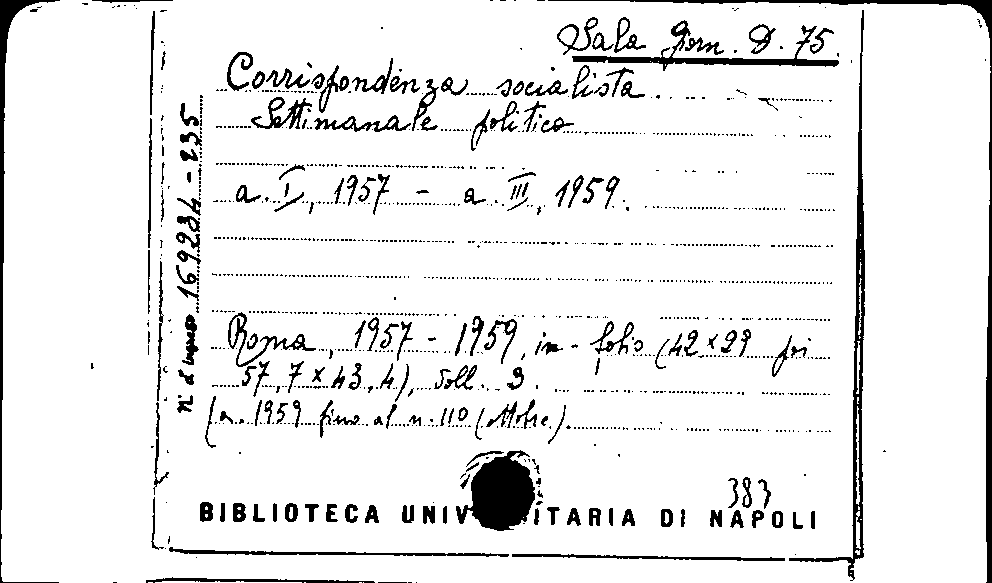 Sala Giorn. D. 75.
Corrispondenza socialista.
Settimanale politico
a. I, 1957 - a. III, 1959.
N° d'ingresso 169234-235
Roma, 1957 - 1959, in-folio (42 x 29 poi
57,7 x 43,4), voll. 3.
(a. 1959 fino al n. 110 (ottobre).
383
BIBLIOTECA UNIV ITARIA DI NAPOLI